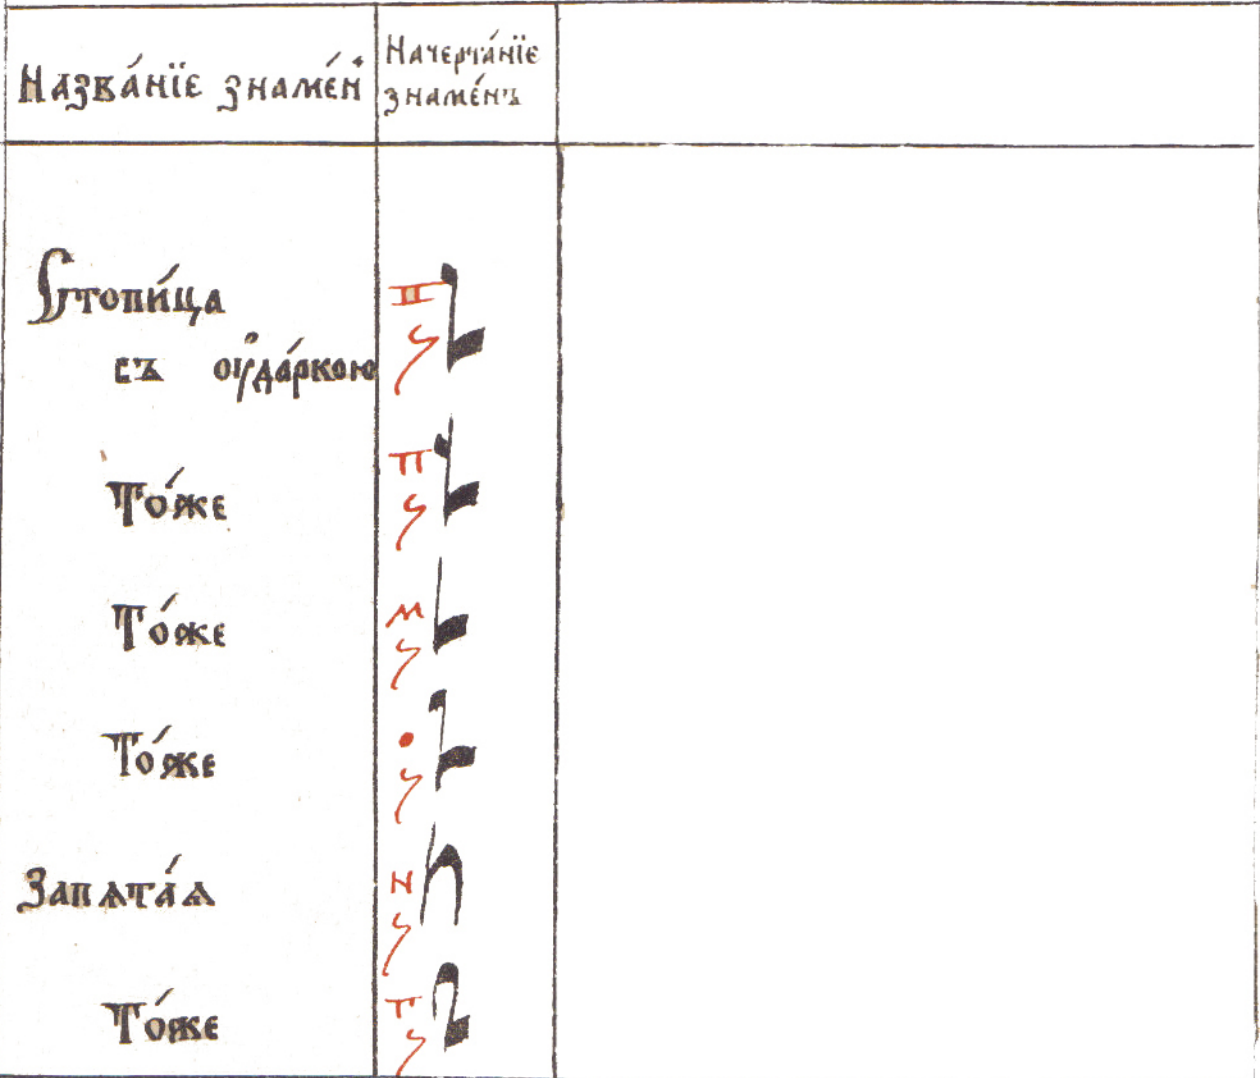 Назва́нїе знаме́н
Начерта́нїе
знаме́нъ
Стопи́ца
съ оуда́ркою
То́же
То́же
То́же
Запѧта́ѧ
То́же